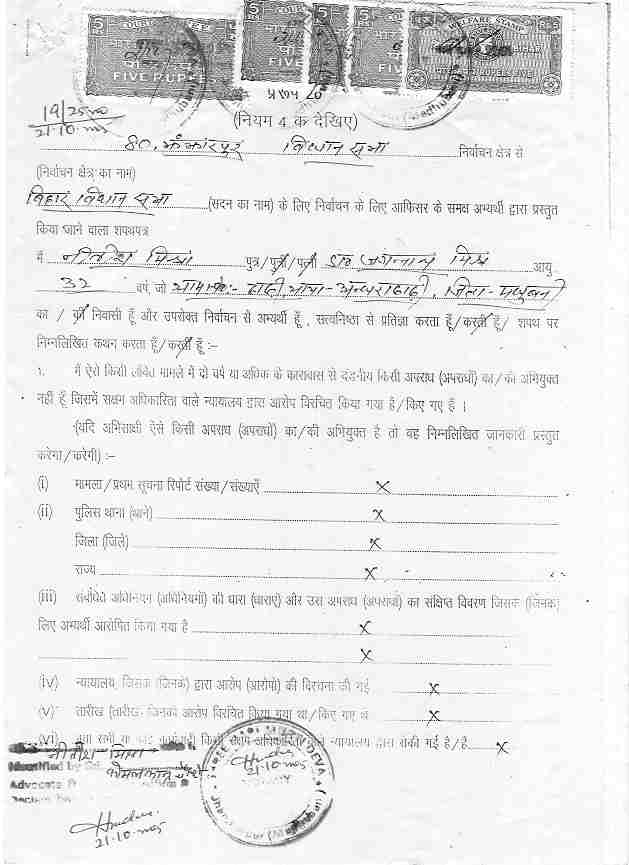 FIVE RUPEES
WELFARE STAMP
प्ररूप
(नियम 4 क देखिए)
21.10.05
80. झंझारपुर विधान सभा निर्वाचन क्षेत्र से
(निर्वाचन क्षेत्र का नाम)
बिहार विधान सभा (सदन का नाम) के लिए निर्वाचन के लिए आफिसर के समक्ष अभ्यर्थी द्वारा प्रस्तुत
किया जाने वाला शपथपत्र
मैं नीतीश मिश्रा पुत्र/पुत्री/पत्नी डा० जगन्नाथ मिश्र आयु
32 वर्ष, जो जिला-मधुबनी
का / की निवासी हूँ और उपरोक्त निर्वाचन से अभ्यर्थी हूँ, सत्यनिष्ठा से प्रतिज्ञा करता हूँ/करती हूँ/ शपथ पर
निम्नलिखित कथन करता हूँ/करती हूँ :-
१. मैं ऐसे किसी लंबित मामले में दो वर्ष या अधिक के कारावास से दंडनीय किसी अपराध (अपराधों) का/की अभियुक्त
नहीं हूँ जिसमें सक्षम अधिकारिता वाले न्यायालय द्वारा आरोप विरचित किया गया है/किए गए हैं ।
(यदि अभिसाक्षी ऐसे किसी अपराध (अपराधों) का/की अभियुक्त है तो वह निम्नलिखित जानकारी प्रस्तुत
करेगा/करेगी) :-
(i) मामला/प्रथम सूचना रिपोर्ट संख्या/संख्याएँ x
(ii) पुलिस थाना (थाने) x
जिला (जिले) x
राज्य x
(iii) संबंधित अधिनियम (अधिनियमों) की धारा (धाराएं) और उस अपराध (अपराधों) का संक्षिप्त विवरण जिसके (जिनके)
लिए अभ्यर्थी आरोपित किया गया है x
x
(iv) न्यायालय, जिसके (जिनके) द्वारा आरोप (आरोपों) की विरचना की गई x
(v) तारीख (तारीखें) जिनको आरोप विरचित किया गया था/किए गए थे x
(vi) क्या सभी या कोई कार्यवाही किसी सक्षम अधिकारिता वाले न्यायालय द्वारा रोकी गई है/हैं x
नीतीश मिश्रा
Identified by
Advocate
21.10.05
21.10.05